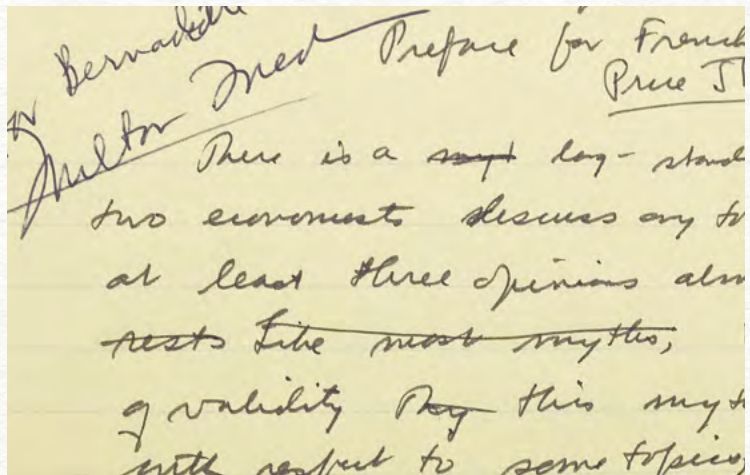 Bernadette
Milton Fried
Preface for French
Price
There is a myt long-stand
two economists discuss any to
at least three opinions alm
rests Like most myths,
of validity this myt
with respect to some topics,